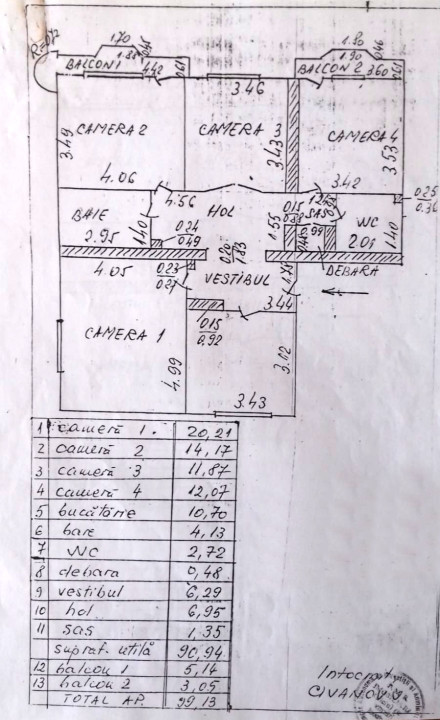 1.70
1.90
R=0,7
1.88
0.45
1.90
0.46
BALCON 1
4.42
0.61
BALCON 2
3.60
0.61
3.46
CAMERA 2
CAMERA 3
CAMERA 4
3.49
3.43
3.53
4.06
3.42
4.56
0.25
0.36
BAIE
HOL
0.15
0.38
1.24
SAS
WC
2.95
1.40
0.24
0.49
1.55
0.99
2.01
1.40
4.05
0.23
0.27
0.20
1.83
VESTIBUL
DEBARA
3.44
CAMERA 1
0.15
0.92
4.99
3.12
3.43
1 cameră 1. 20,21
2 cameră 2 14,17
3 cameră 3 11,87
4 cameră 4 12,07
5 bucătărie 10,70
6 baie 4,13
7 WC 2,72
8 debara 0,48
9 vestibul 6,29
10 hol 6,95
11 sas 1,35
supraf. utilă 90,94
12 balcon 1 5,14
13 balcon 2 3,05
TOTAL AP. 99,13
Intocmit